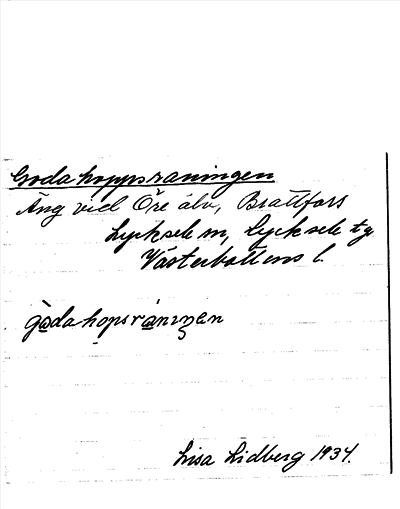 Goda hoppsraningen
Äng vid Öre älv, Brattfors
Lycksele m, Lycksele tg
Västerbottens l.
gòdahopsrànıŋen
Lisa Lidberg 1934.